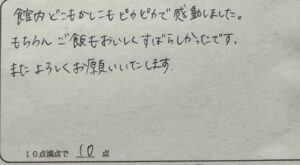 館内どこもかしこもピカピカで感動しました。
もちろんご飯もおいしくすばらしかったです。
またよろしくお願いいたします
10点満点で 10 点